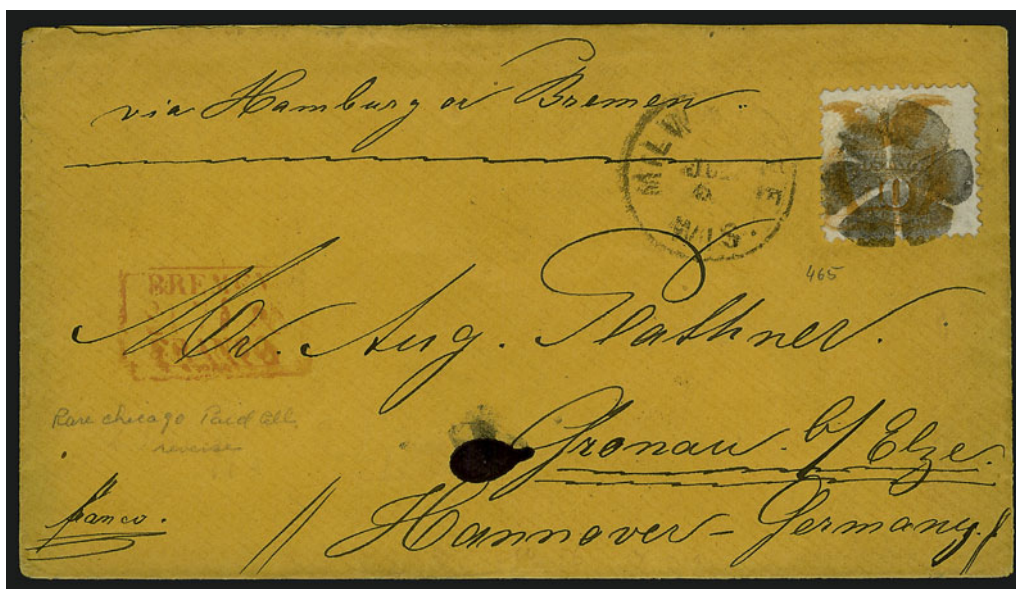 via Hamburg or Bremen.
MILW
WIS.
10
465
BREMEN
FRANCO
Mr. Aug. Plathner.
Rare Chicago Paid All,
reverse
Gronau b/Elze.
franco.
Hannover - Germany.